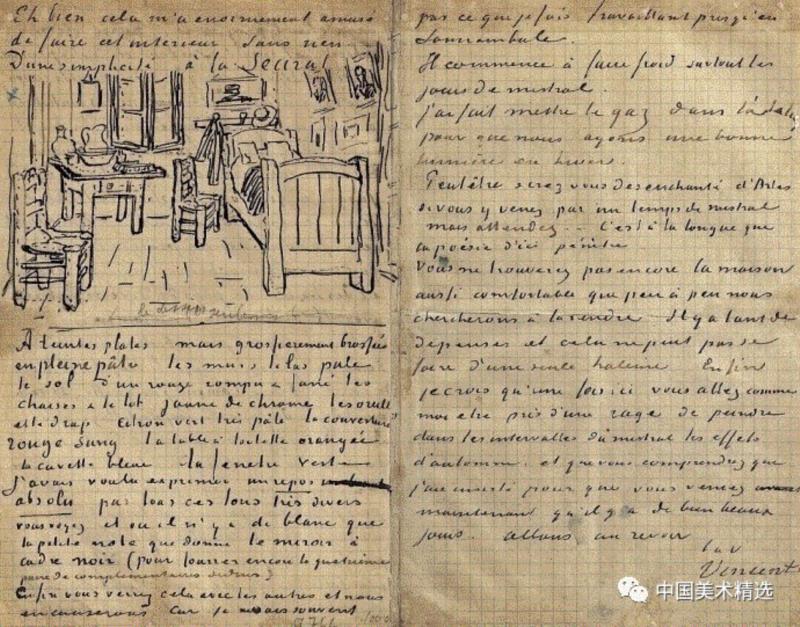 Eh bien cela m'a enormement amusé
de faire cet interieur sans rien
D'une simplicité à la Seurat
A teintes plates mais grossierement brossées
en pleine pâte les murs lilas pale
le sol d'un rouge rompu & fané les
chaises & le lit jaune de chrome les oreillers
et le drap citron vert très pâle la couverture
rouge sang la table à toilette orangée
la cuvette bleue la fenetre verte
J'avais voulu exprimer un repos
absolu par tous ces tons très divers
vous voyez et où il n'y a de blanc que
la petite note que donne le miroir à
cadre noir (pour fourrer encore la quatrième
paire de complementaires dedans)
Enfin vous verrez cela avec les autres et nous
en causerons car je ne sais souvent
pas ce que je fais travaillant presqu'en
somnambule.
Il commence à faire froid surtout les
jours de mistral.
J'ai fait mettre le gaz dans
pour que nous ayons une bonne
lumière en hiver.
Peutêtre serez vous desenchanté d'Arles
si vous y venez par un temps de mistral
mais attendez.. C'est à la longue que
la poésie d'ici pénètre
Vous ne trouverez pas encore la maison
aussi comfortable que peu à peu nous
chercherons à la rendre Il y a tant de
dépenses et cela ne peut pas se
faire d'une seule haleine Enfin
je crois qu'une fois ici vous allez comme
moi etre pris d'une rage de peindre
dans les intervalles du mistral les effets
d'automne. et que vous comprendrez que
j'aie insisté pour que vous veniez
maintenant qu'il y a de bien beaux
jours. allons au revoir
t.a.v
Vincent
中国美术精选